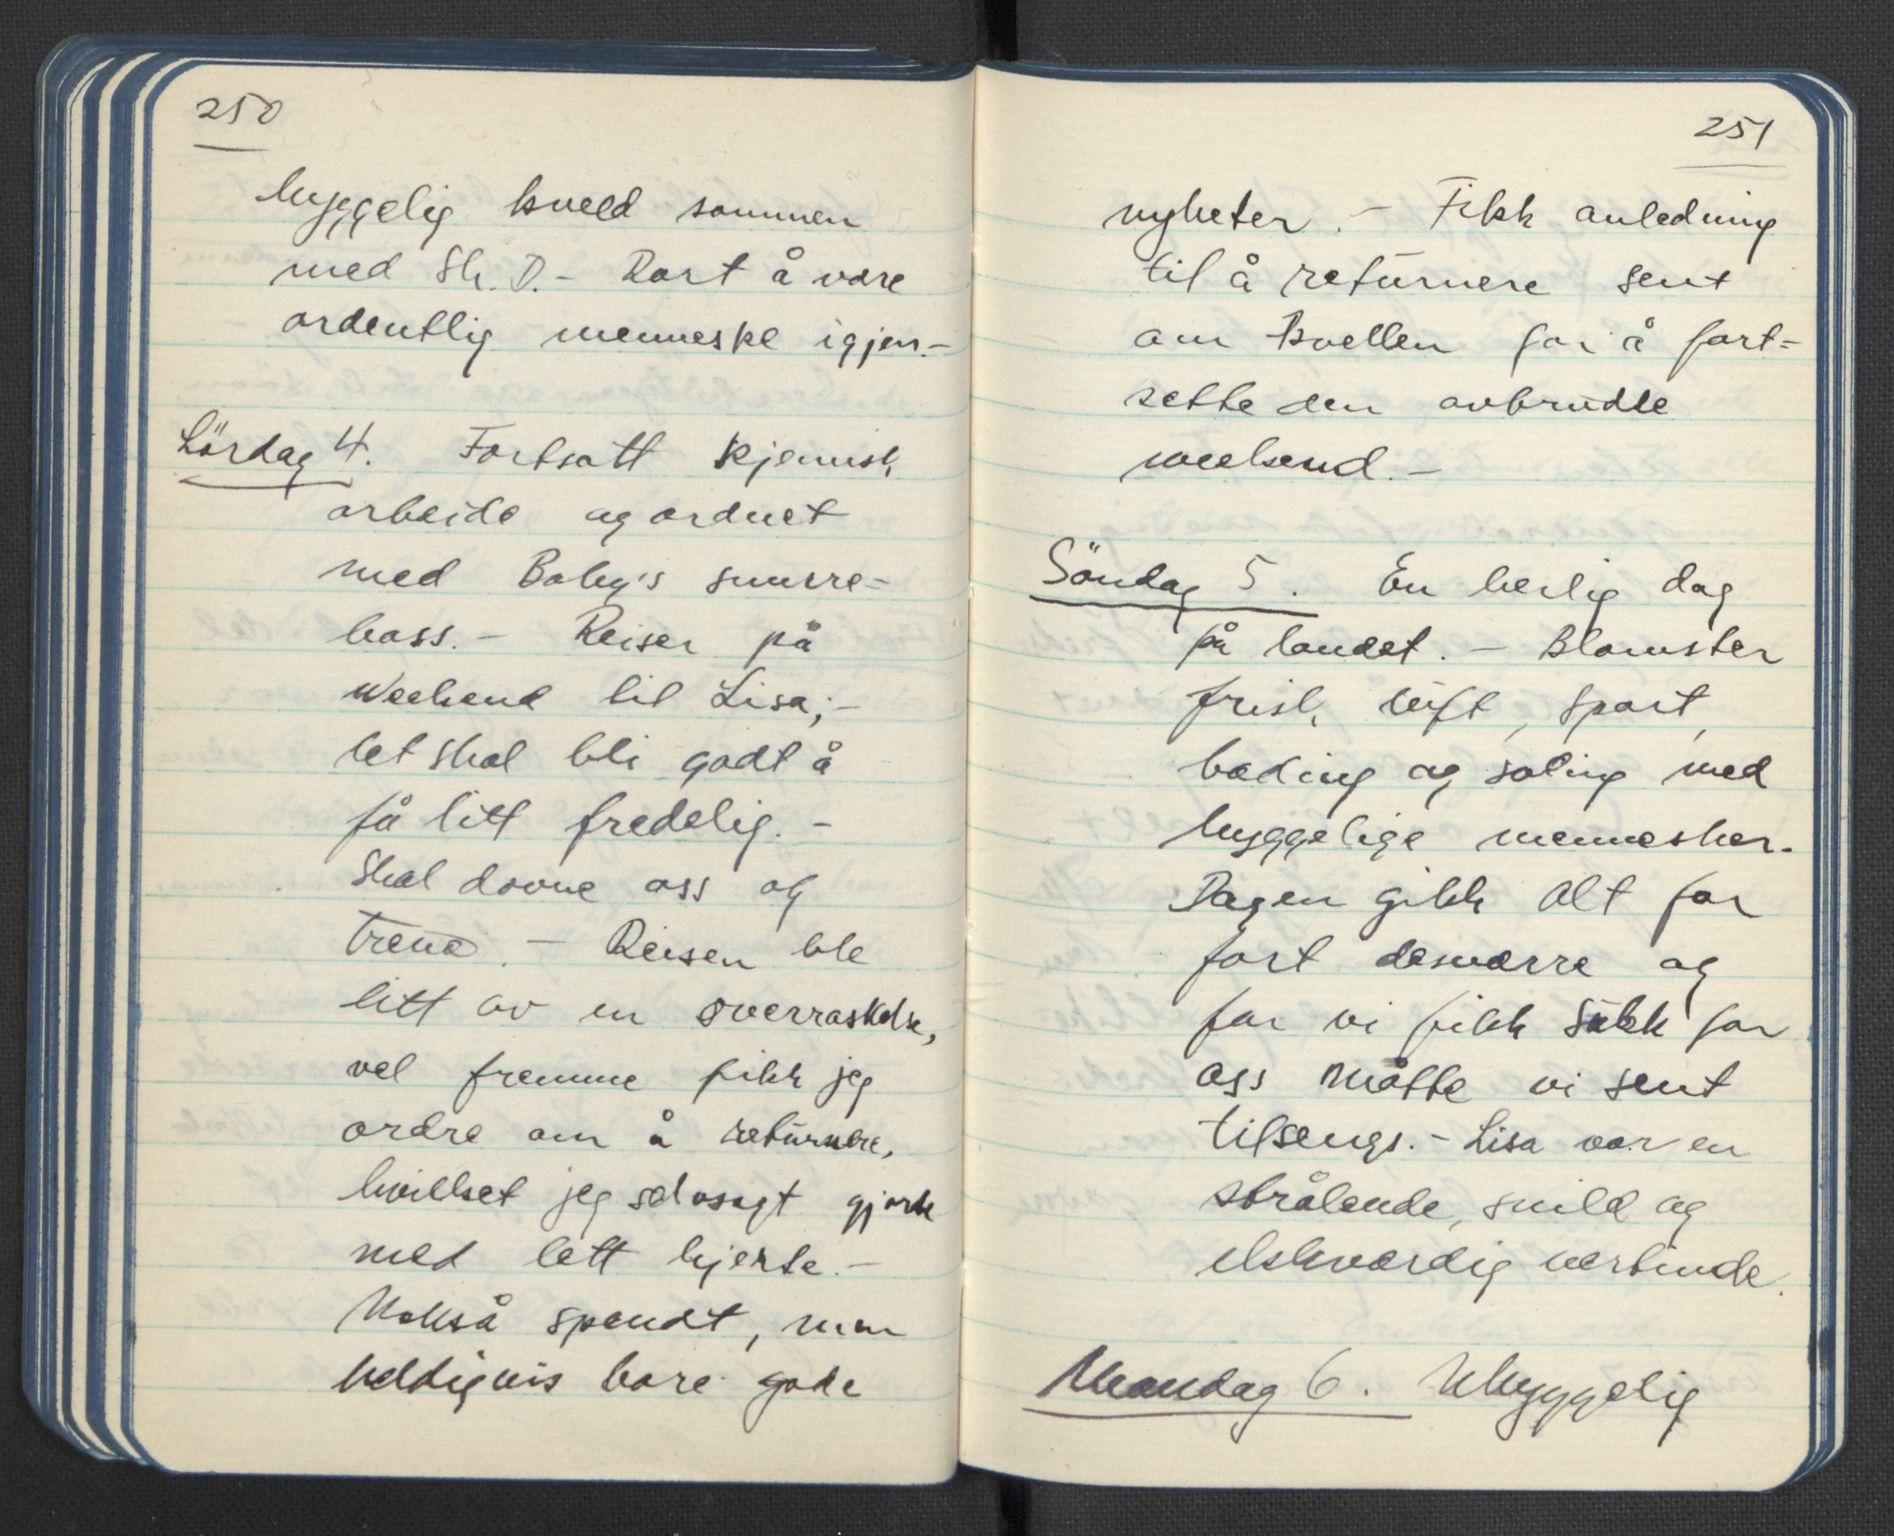 250
hyggelig kveld sammen
med Sk. D. - Rart å være
ordentlig menneske igjen. -
Lördag 4. Fortsatt kjemisk
arbeide og ordnet
med Baby's snurre-
bass. - Reiser på
Weekend til Lisa; -
det skal bli godt å
få litt fredelig. -
Skal dovne oss og
trene. - Reisen ble
litt av en overraskelse,
vel fremme fikk jeg
ordre om å returnere,
hvilket jeg selvsagt gjorde
med lett hjerte. -
Nokså spendt, men
heldigvis bare gode
251
nyheter. - Fikk anledning
til å returnere sent
om kvellen for å fort=
sette den avbrudte
weekend. -
Söndag 5. En herlig dag
på landet. - Blomster
frisk luft, sport,
bading og soling med
hyggelige mennesker.
Dagen gikk alt for
fort desværre og
før vi fikk sukk for
oss måtte vi sent
tilsengs. - Lisa var en
strålende, snild og
elskværdig vertinde.
Mandag 6. Uhyggelig